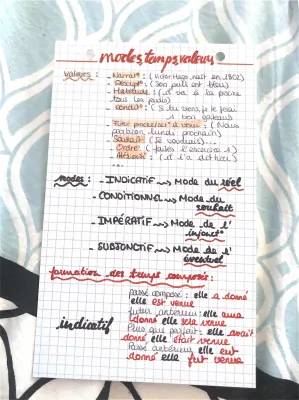 modes, temps, valeurs
valeurs : - Narrat° : (Victor Hugo naît en 1802)
- Descript° : (Son pull est bleu)
- Habitude : (il va à la
tous les jeudis)
- condit° : (Si tu viens, je te ferai
1 bon gateau)
Futur proche/
lundi prochain)
- Souhait : (Je voudrais...)
- Ordre : (faites l'exercice 1)
...
modes : - INDICATIF ⇝ Mode du réel
- CONDITIONNEL ⇝ Mode du
souhait
- IMPÉRATIF ⇝ Mode de l'
injonct°
- SUBJONCTIF ⇝ Mode de l'
éventuel
formation des temps composés :
indicatif
passé composé : elle a donné
elle est venue
futur antérieur : elle aura
donné elle sera venue
Plus que parfait : elle avait
donné elle était venue
Passé antérieur elle eut
donné elle fut venue